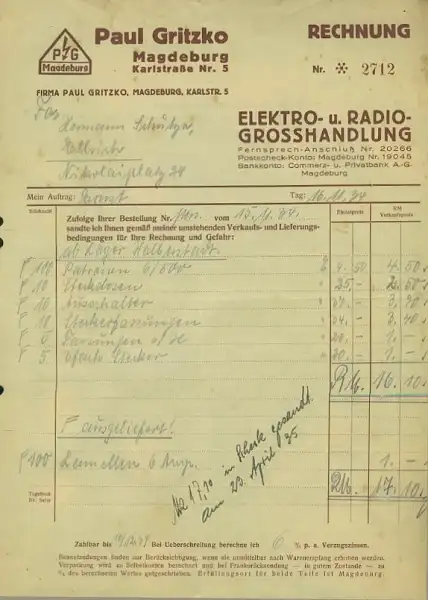 P G
Magdeburg
Paul Gritzko
Magdeburg
Karlstraße Nr. 5
RECHNUNG
Nr. 2712
FIRMA PAUL GRITZKO, MAGDEBURG, KARLSTR. 5
ELEKTRO- u. RADIO-
GROSSHANDLUNG
Fernsprech-Anschluß Nr. 20266
Postscheck-Konto: Magdeburg Nr. 19045
Bankkonto: Commerz- u. Privatbank A.-G.
Magdeburg
Hermann
Nikolaiplatz 24
Mein Auftrag: Tag: 16.11.34
Stückzahl Einzelpreis RM Verkaufspreis
Zufolge Ihrer Bestellung Nr. vom 15.11.
sandte ich Ihnen gemäß meiner umstehenden Verkaufs- und Lieferungs-
bedingungen für Ihre Rechnung und Gefahr:
ab Lager Halberstadt.
100 Patronen 6/500 4.50 4.50
10 Steckdosen 25.- 2.50
10 Ausschalter
10 Steckerfassungen 34.-
Fassungen 20.- 1.-
5 Stecker 20.- 1.-
16.10
F ausgeliefert!
100 Lamellen 6 Amp. 1.-
17.10
17,10 in Scheck gesandt
am 23. April 35
Tagebuch
Nr. Seite
Zahlbar bis Bei Ueberschreitung berechne ich 6 % p. a. Verzugszinsen.
Beanstandungen finden nur Berücksichtigung, wenn sie unmittelbar nach Warenempfang erhoben werden.
Verpackung wird zu Selbstkosten berechnet und bei Frankorücksendung — in gutem Zustande — zu
% des berechneten Wertes gutgeschrieben. Erfüllungsort für beide Teile ist Magdeburg.